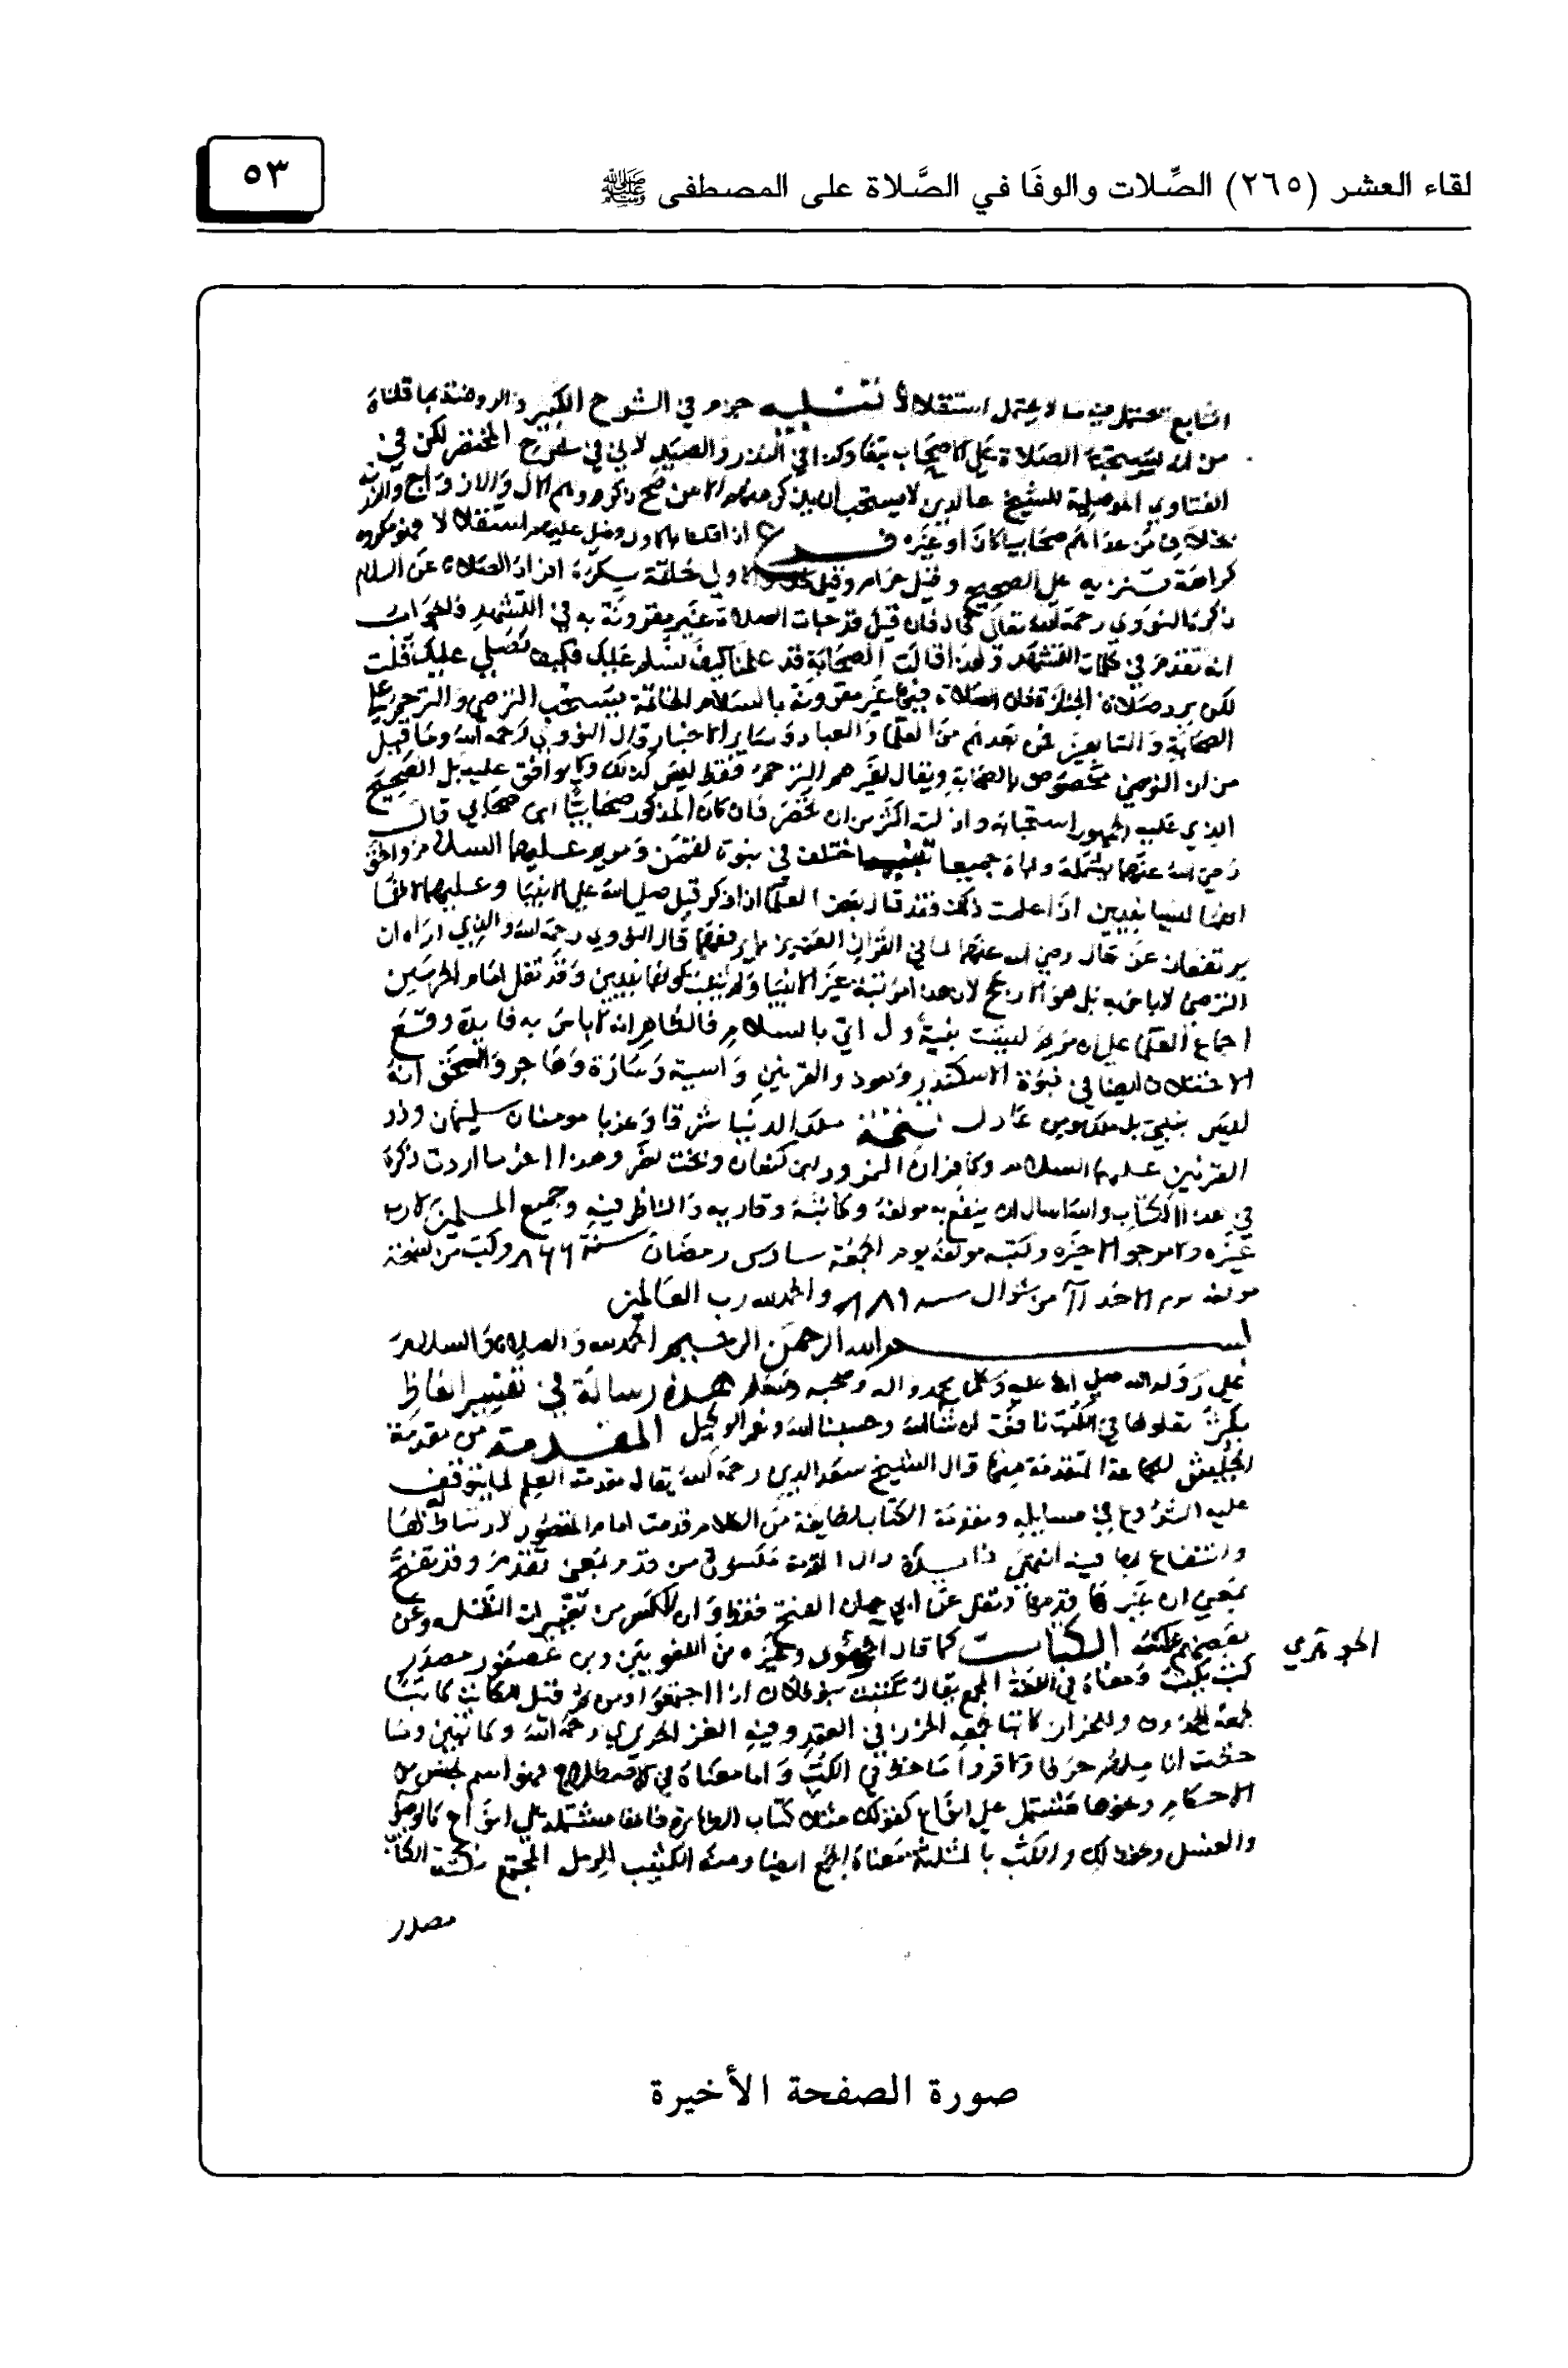 لقاء العشر (٢٦٥) الصِّلات والوفَا في الصَّلاة على المصطفى ﷺ
٥٣
التابع يحتمل فيه ما لا يحتمل استقلالا تنبيه جزم في الشرح الكبير والروضة بما قلناه
من انه يستحب الصلاة على الاصحاب تبعا وكذا في النذر والصيد لا في في شرح المختصر لكن في
الفتاوي الموصلية للشيخ لا يستحب ان يذكر الا من صح ذكره وهم الال والازواج والذرية
بخلاف من عداهم صحابيا كان او غيره فرع اذا قلنا بالاول وصلى عليهم استقلالا فهو مكروه
كراهة تنزيه على الصحيح وقيل حرام وقيل الاولى خاتمة يكره افراد الصلاة عن السلام
ذكره النووي رحمه الله تعالى فان قيل قد جات الصلاة غير مقرونة به في التشهد فالجواب
انه تقدم في كلمات التشهد ولهذا قالت الصحابة قد علمنا كيف نسلم عليك فكيف نصلي عليك قلت
لكن يرد صلاة الجنازة فان الصلاة فيها غير مقرونة بالسلام خاتمة يستحب الترضي والترحم على
الصحابة والتابعين فمن بعدهم من العلما والعباد وساير الاخيار قال النووي رحمه الله وما قيل
من ان الترضي مخصوص بالصحابة ويقال لغيرهم الترحم فقط ليس كذلك ولا يوافق عليه بل الصحيح
الذي عليه الجمهور استحبابه و اكثر من ان تحصر فان كان المذكور صحابيا ابن صحابي قال
رضي الله عنهما ليشمله واباه جميعا تنبيه اختلف في نبوة لقمن ومريم عليهما السلام والحق
انهما ليسا بنبيين اذا علمت ذلك فقد قال بعض العلما اذا ذكر قيل صلى الله على الانبيا وعليهما لانهما
يرتفعان عن حال رضي الله عنهما لما في القران العزيز مما يرفعهما قال النووي رحمه الله والذي اراه ان
الترضي لا باس به بل هو الارجح لان هذا مرتبة غير الانبيا ولم يثبت كونهما نبيين وقد نقل امام الحرمين
اجماع العلما على ان مريم ليست بنبية ولو اتى بالسلام فالظاهر انه لا باس به فايدة وقع
الاختلاف ايضا في نبوة الاسكندر ذي القرنين واسية وسارة وهاجر والحق انه
ليس بنبي بل ملك مومن عادل ملك الدنيا شرقا وغربا مومنان سليمان وذو
القرنين عليهما السلام وكافران النمرود ابن كنعان وبخت نصر وهذا اخر ما اردت ذكره
في هذا الكتاب والله اسال ان ينفع به مولفه وكاتبه وقاريه والناظر فيه وجميع المسلمين لا رب
غيره ولا مرجو الا خيره وكتبه مولفه يوم الجمعة سادس رمضان سنة ٨٦٦ وكتب من نسخة
مولفه يوم الاحد من شوال سنة ٨٨١ والحمد لله رب العالمين
بسم الله الرحمن الرحيم الحمد لله والصلاة والسلام
على رسول الله صلى الله عليه وعلى محمد واله وصحبه وسلم هذه رسالة في تفسير الفاظ
يكثر تداولها في الكتب نافعة ان شا الله وحسبنا الله ونعم الوكيل المقدمة من مقدمة
الجيش للجماعة المتقدمة منها قال الشيخ سعد الدين رحمه الله يقال مقدمة العلم لما يتوقف
عليه الشروع في مسايله ومقدمة الكتاب لطايفة من الكلام قدمت امام المقصود لارتباط لها
وانتفاع بها فيه انتهى دال المقدمة مكسورة من قدم بمعنى تقدم وقد تفتح
بمعنى ان غيرها قدمها ونقل عن ابي حيان الفتح فقط وان الكسر من تغييرات النقلة وعن
بعضهم عكسه الكتاب كما قال الجوهري وغيره من اللغويين وابن عصفور مصدر
الجوهري
كتب يكتب ومعناه في اللغة الجمع يقال تكتبت بنو فلان اذا اجتمعوا ومن ثم قيل للكاتب كاتبا
لجمعه الحروف وللخراز كاتبا لجمعه الخرز في العقد وفيه الغز الحريري رحمه الله وكاتبين وما
خطت اناملهم حرفا ولا قروا ما خط في الكتب واما معناه في الاصطلاح فهو اسم لجنس من
الاحكام ونحوها مشتمل على انواع كقولك مثلا كتاب الطهارة فانها مشتملة على انواع كالوضو
والغسل ونحو ذلك والكثب بالمثلثة معناه الجمع ايضا ومنه الكثيب للرمل المجتمع
مصدر
صورة الصفحة الأخيرة